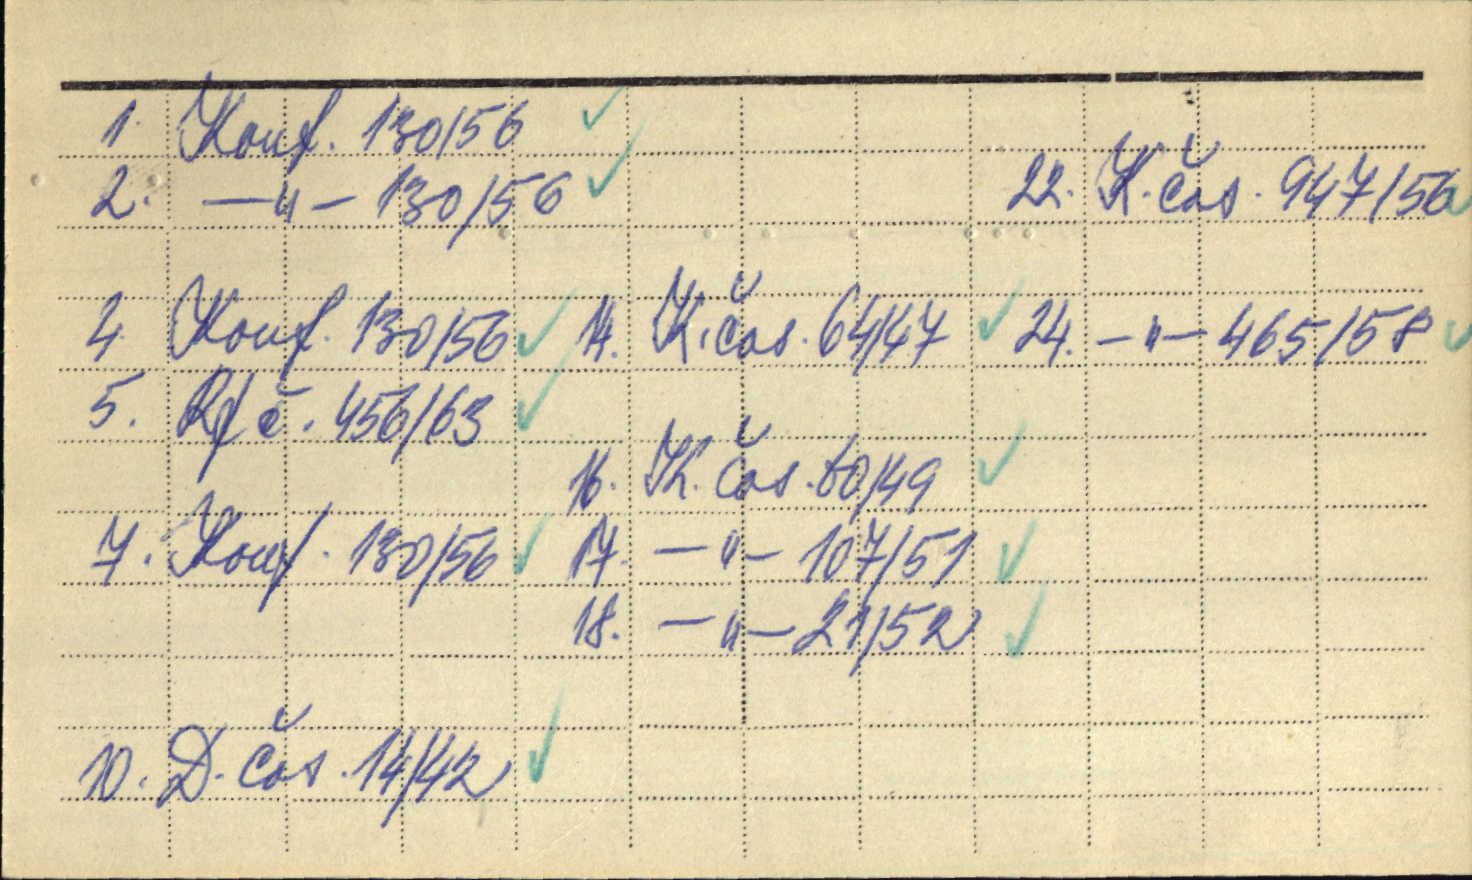 1. Konf. 130/56
2. —"— 130/56
4. Konf. 130/56
5. Rf č. 456/63
7. Konf. 130/56
10. D. čas. 14/42
14. K. čas. 64/47
16. K. čas. 60/49
17. —"— 107/51
18. —"— 21/52
22. K. čas. 947/56
24. —"— 465/58